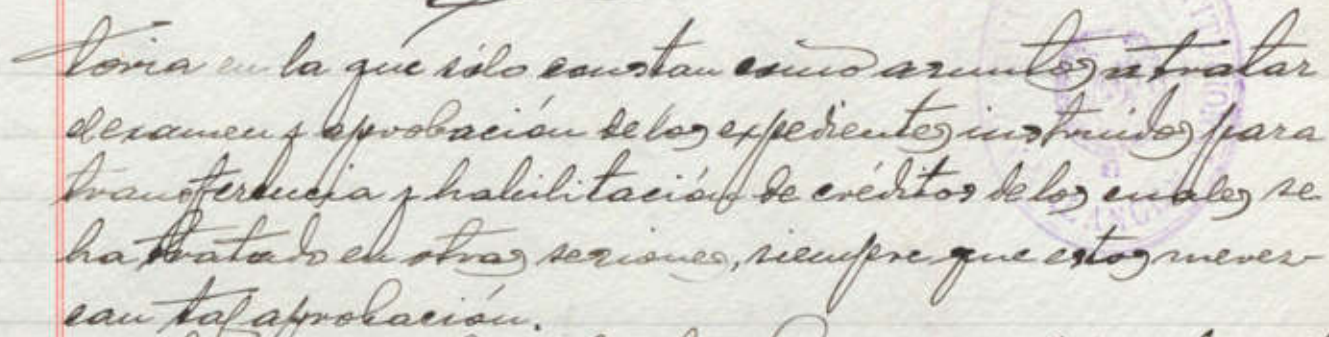 toria en la que sólo constan como asuntos a tratar
el examen y aprobación de los expedientes instruidos para
transferencia y habilitación de créditos de los cuales se
ha tratado en otras sesiones, siempre que estos merez-
can tal aprobación.